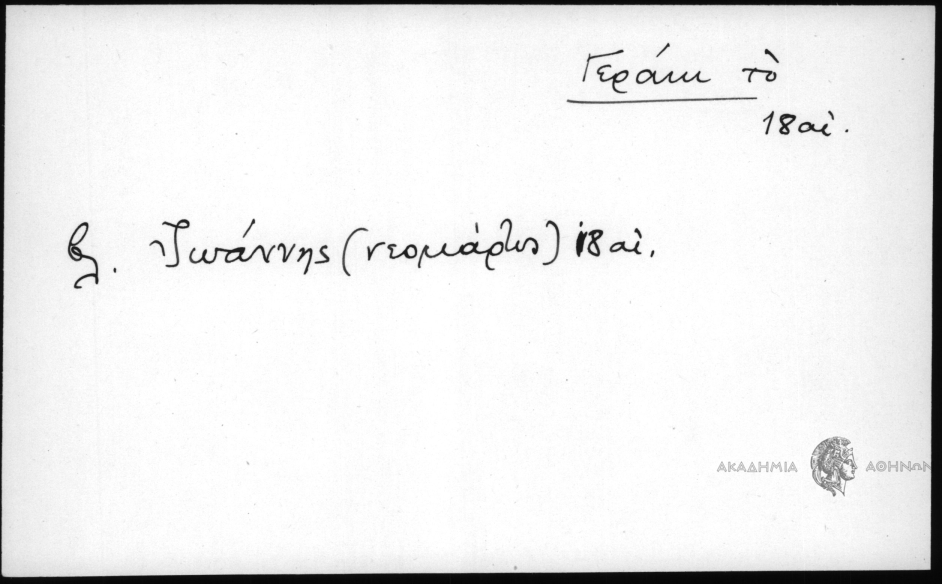 Γεράκι τὸ
18 αἰ.
βλ. Ἰωάννης (νεομάρτυς) 18 αἰ.
ΑΚΑΔΗΜΙΑ ΑΘΗΝΩΝ